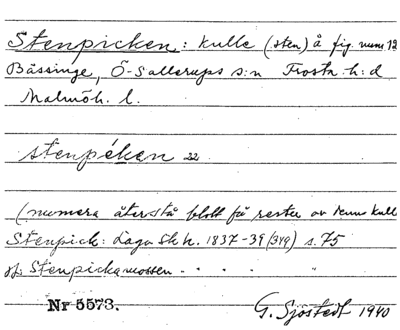 Stenpicken: kulle (sten) å fig. num 12
Bässinge, Ö-Sallerups s:n Frosta h:d
Malmöh. l.
stenpéken 22
(numera återstå blott få rester av kulle
Stenpick: Laga Sk h. 1837-39 (349) s. 75
jf: Stenpickamossen - - - "
Nr 5573. G. Sjöstedt 1940